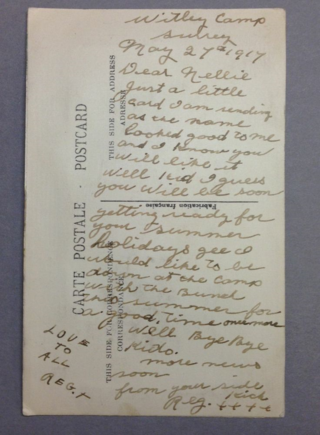 Witley Camp
Surrey
May 27th 1917
Dear Nellie
Just a little
card I am sending
as the name
looked good to me
and I know you
will like it
Well Kid I guess
you Will be soon
getting ready for
your summer
holidays gee I
would like to be
down at the Camp
with the Bunch
the summer for
a good time once more
Well Bye Bye
Kido.
more news
soon
from your side
Kick
Reg. ++++
LOVE
TO
ALL
REG. +
CARTE POSTALE · POSTCARD
THIS SIDE FOR ADDRESS
ADRESSE
Fabrication française
THIS SIDE FOR CORRESPONDENCE
CORRESPONDANCE